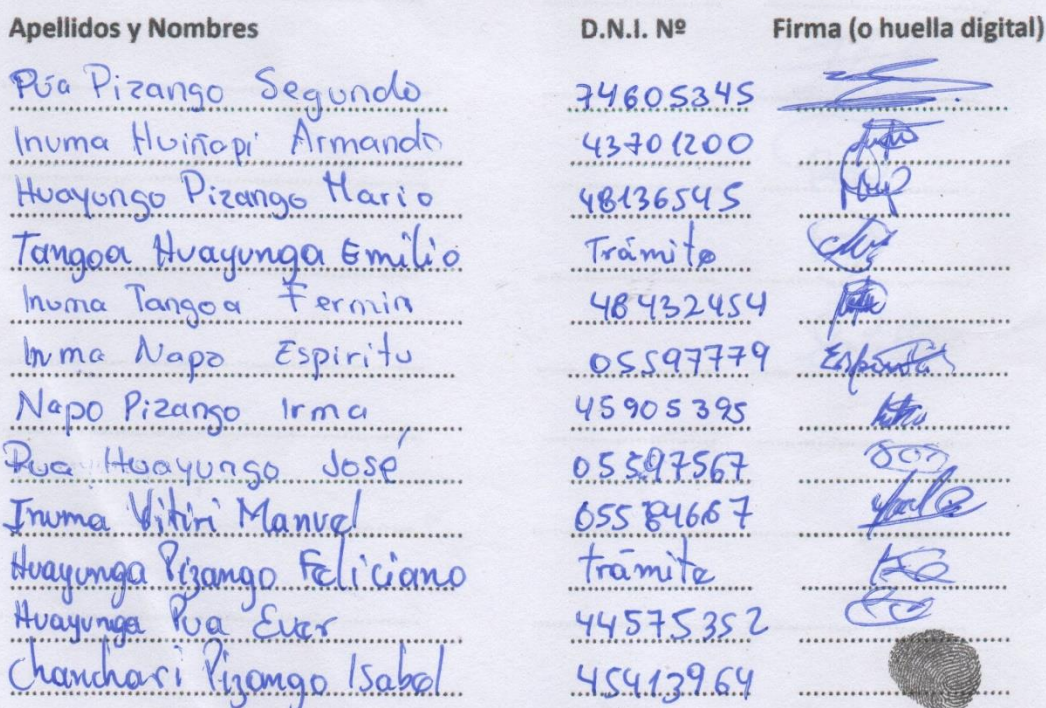 Apellidos y Nombres D.N.I. Nº Firma (o huella digital)
Púa Pizango Segundo 74605345
Inuma Huiñapi Armando 43701200
Huayungo Pizango Mario 48136545
Tangoa Huayunga Emilio Trámite
Inuma Tangoa Fermin 48432454
Inuma Napo Espiritu 05597779 Espiritu
Napo Pizango Irma 45905395
Pua Huayungo José 05597567
Inuma Vitiri Manuel 05584667
Huayunga Pizango Feliciano trámite
Huayunga Pua Ever 44575352
Chanchari Pizango Isabel 45413964